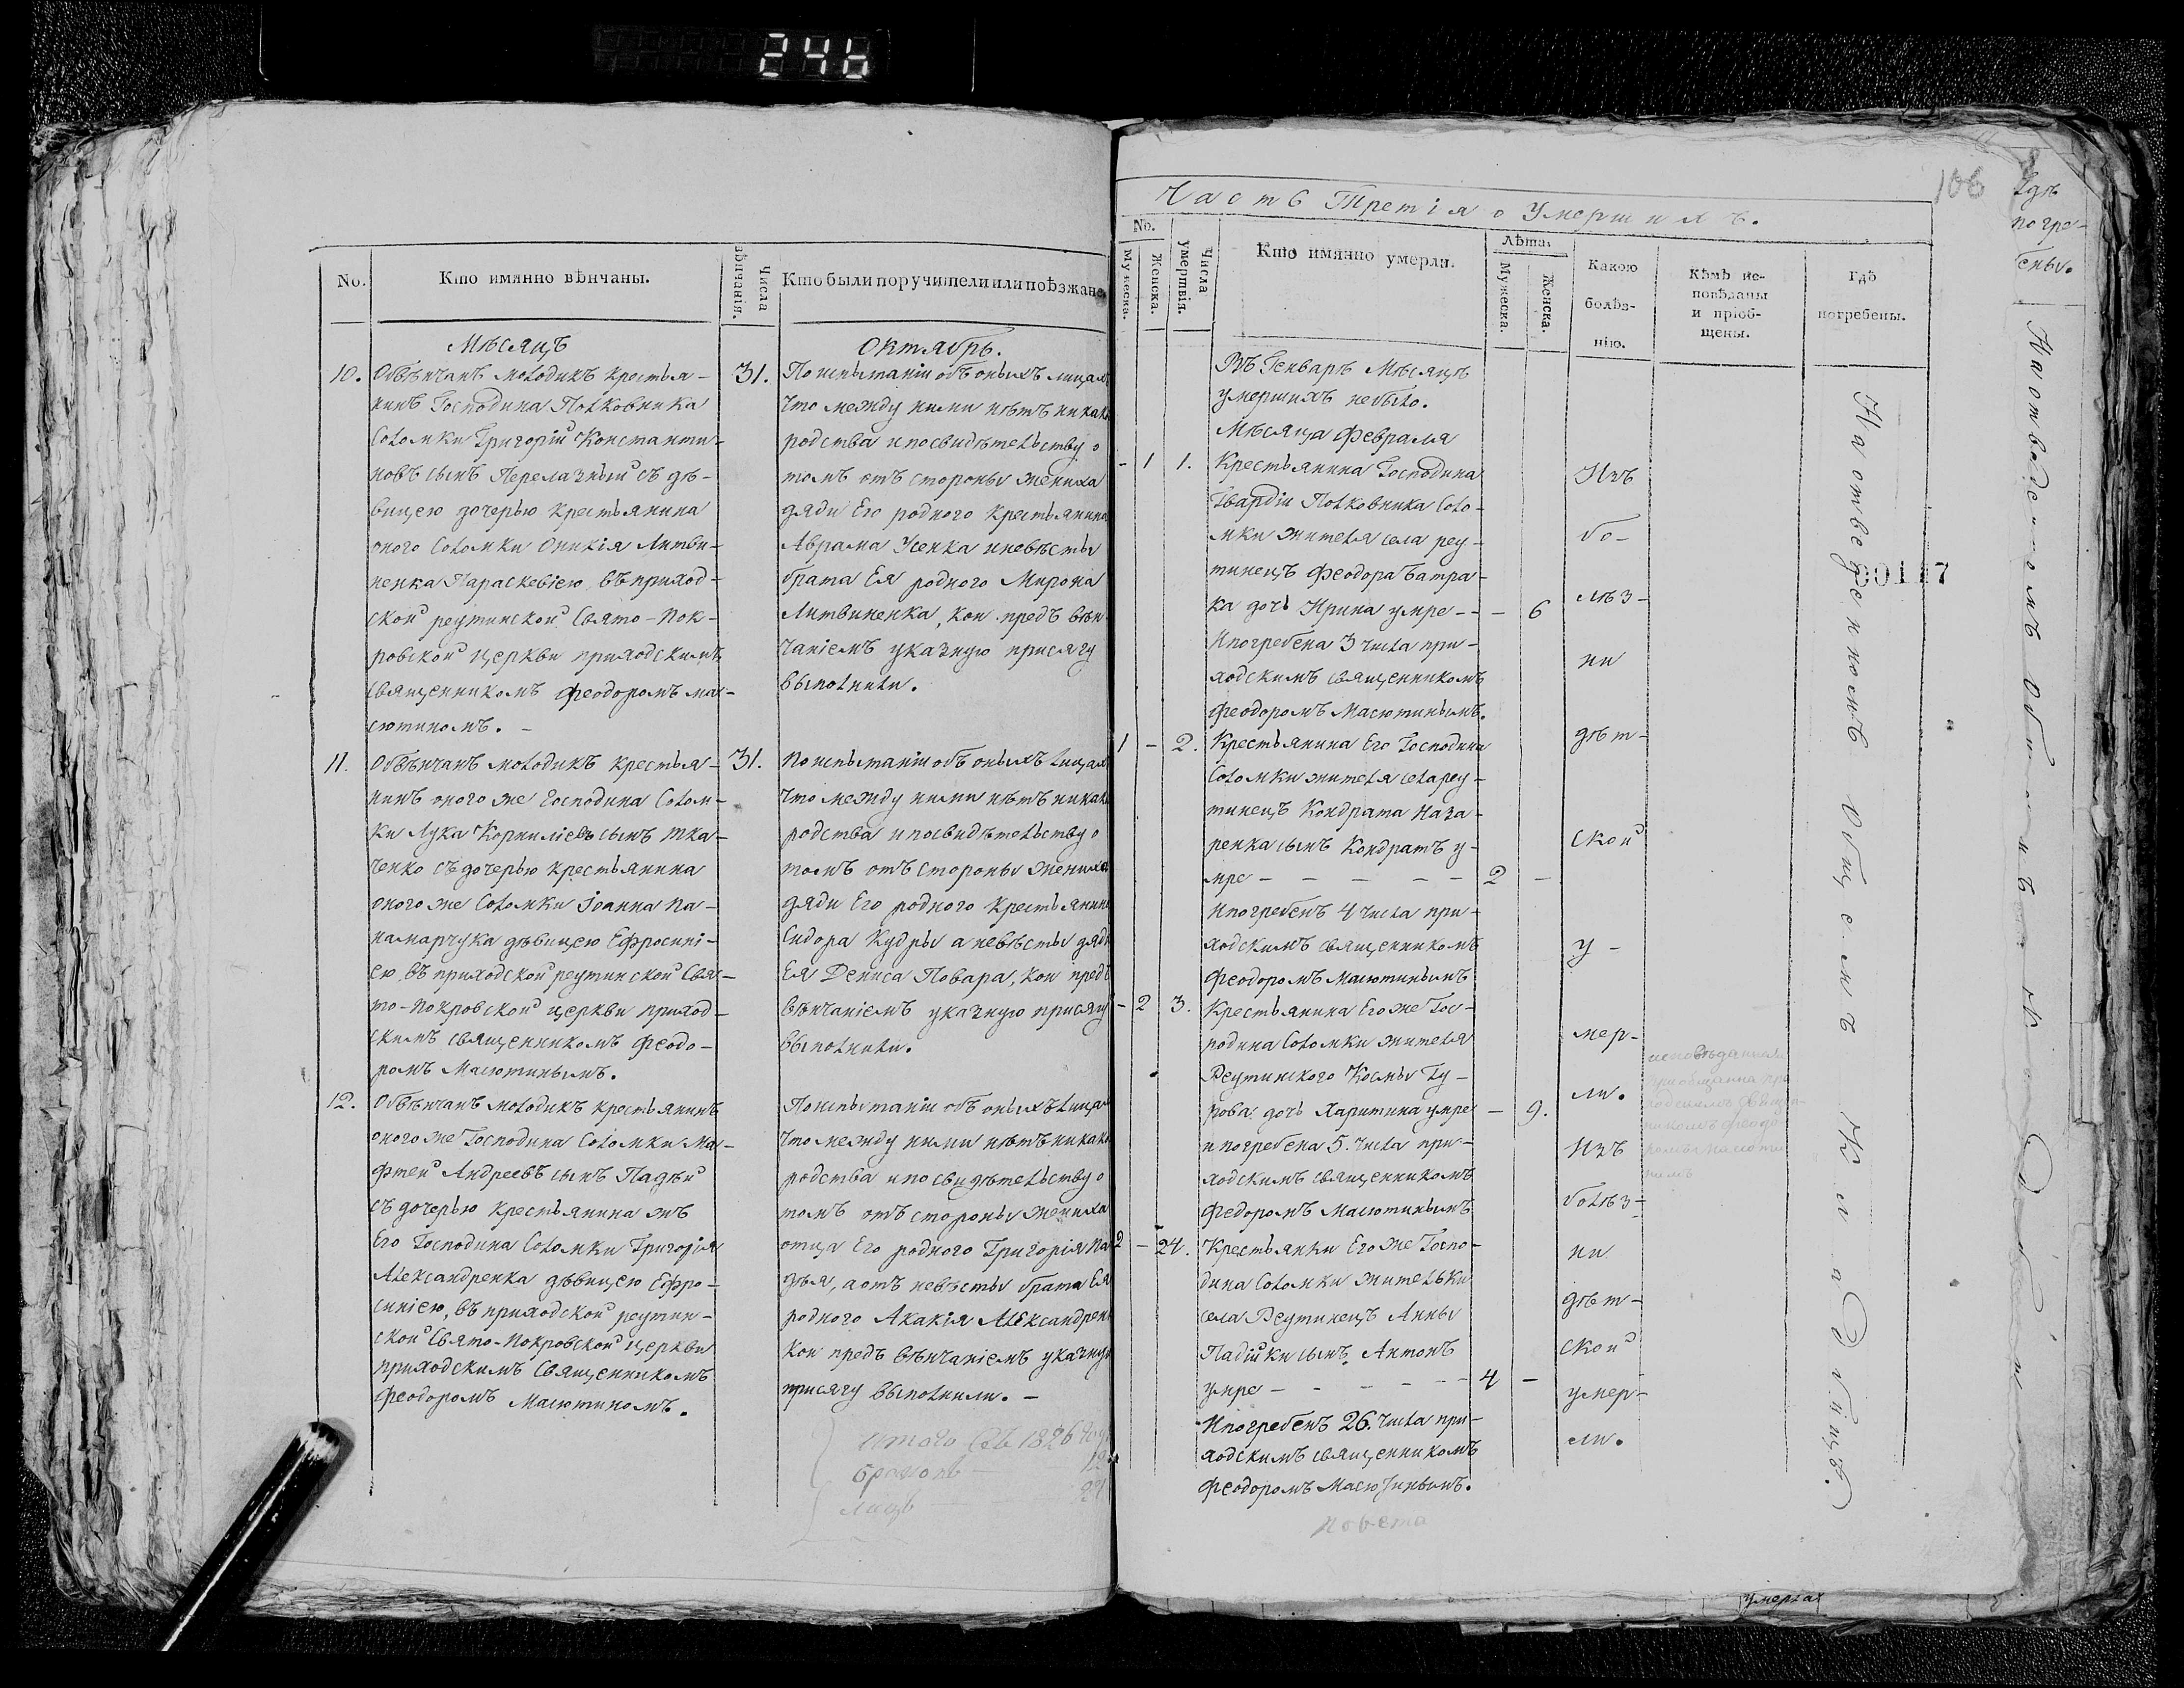 246
No.
Кто имянно вѣнчаны.
Числа вѣнчанія.
Кто были поручители или поѣзжане
Мѣсяцъ
Октябрь.
10.
Обвѣнчанъ молодикъ крестья-
нинъ Господина Полковника
Соломки Григорій Константи-
новъ сынъ Перелазный съ дѣ-
вицею дочерью крестьянина
оного Соломки Оникія Литви-
ненка Параскевіею въ приход-
ской реутинской Свято-Пок-
ровской церкви приходскимъ
священникомъ Феодоромъ Ма-
сютиномъ. -
31.
По испытаніи объ оныхъ лицах
что между ними нѣтъ никак
родства и по свидѣтельству о
томъ отъ стороны жениха
дяди Его родного крестьянина
Аврама Усенка и невѣсты
брата Ея родного Мирона
Литвиненка, кои предъ вѣн-
чаніемъ указную присягу
выполнили.
11.
Обвѣнчанъ молодикъ крестья-
нинъ оного же Господина Солом-
ки Лука Корниліевъ сынъ Тка-
ченко съ дочерью крестьянина
оного же Соломки Іоанна Па-
намарчука дѣвицею Ефросині-
ею въ приходской реутинской Свя-
то-Покровской церкви приход-
скимъ священникомъ Феодо-
ромъ Масютинымъ.
31.
По испытаніи объ оныхъ лицах
что между ними нѣтъ никак
родства и по свидѣтельству о
томъ отъ стороны жениха
дяди Его родного крестьянин
Сидора Кудры а невѣсты дяди
Ея Дениса Повара, кои предъ
вѣнчаніемъ указную присягу
выполнили.
12.
Обвѣнчанъ молодикъ крестьянинъ
оного же Господина Соломки Ма-
фтей Андреевъ сынъ Падѣй
съ дочерью крестьянина жъ
Его Господина Соломки Григорія
Александренка дѣвицею Ефро-
синіею, въ приходской реутин-
ской Свято-Покровской церкви
приходскимъ Священникомъ
Феодоромъ Масютиномъ.
По испытаніи объ оныхъ лицах
что между ними нѣтъ никак
родства и по свидѣтельству о
томъ отъ стороны жениха
отца Его родного Григорія Па
дѣя, а отъ невѣсты брата Ея
родного Акакія Александрен
кои предъ вѣнчаніемъ указную
присягу выполнили. -
итого 1826
браковъ
лицъ
106
Часть Третія о Умершихъ.
No.
Мужеска.
Женска.
Числа умертвія.
Кто имянно умерли.
Лѣта.
Мужеска.
Женска.
Какою болѣз-нію.
Кѣмъ ис-повѣданы и пріоб-щены.
Гдѣ погребены.
Въ Генварѣ Мѣсяцѣ
умершихъ небыло.
Мѣсяца Февраля
- 1 1.
Крестьянина Господина
Гвардіи Полковника Соло-
мки жителя села реу-
тинецъ Феодора Батра-
ка дочь Ирина умре - - - 6
И погребена 3 числа при-
ходскимъ священникомъ
Феодоромъ Масютинымъ.
1 - 2.
Крестьянина Его Господина
Соломки жителя села реу-
тинецъ Кондрата Наза-
ренка сынъ Кондратъ у-
мре - - - - - - 2 -
И погребенъ 4 числа при-
ходскимъ священникомъ
Феодоромъ Масютинымъ
- 2 3.
Крестьянина Его же Гос-
подина Соломки жителя
Реутинского Космы Гу-
рова дочь Харитина умре - 9.
и погребена 5. числа при-
ходскимъ священникомъ
Федоромъ Масютинымъ
2 - 24.
Крестьянки Его же Госпо-
дина Соломки жительки
села Реутинецъ Анны
Падійки сынъ Антонъ
умре - - - - - - 4 -
И погребенъ 26. числа при-
ходскимъ священникомъ
Феодоромъ Масютинымъ.
Изъ
бо-
лѣз-
ни
дѣт-
ской
у-
мер-
ли.
Изъ
болѣз-
ни
дѣт-
ской
умер-
ли.
На отведенномъ Общемъ Кладбищѣ.
гдѣ
погре-
бены.
На отведенномъ Общемъ
умерла